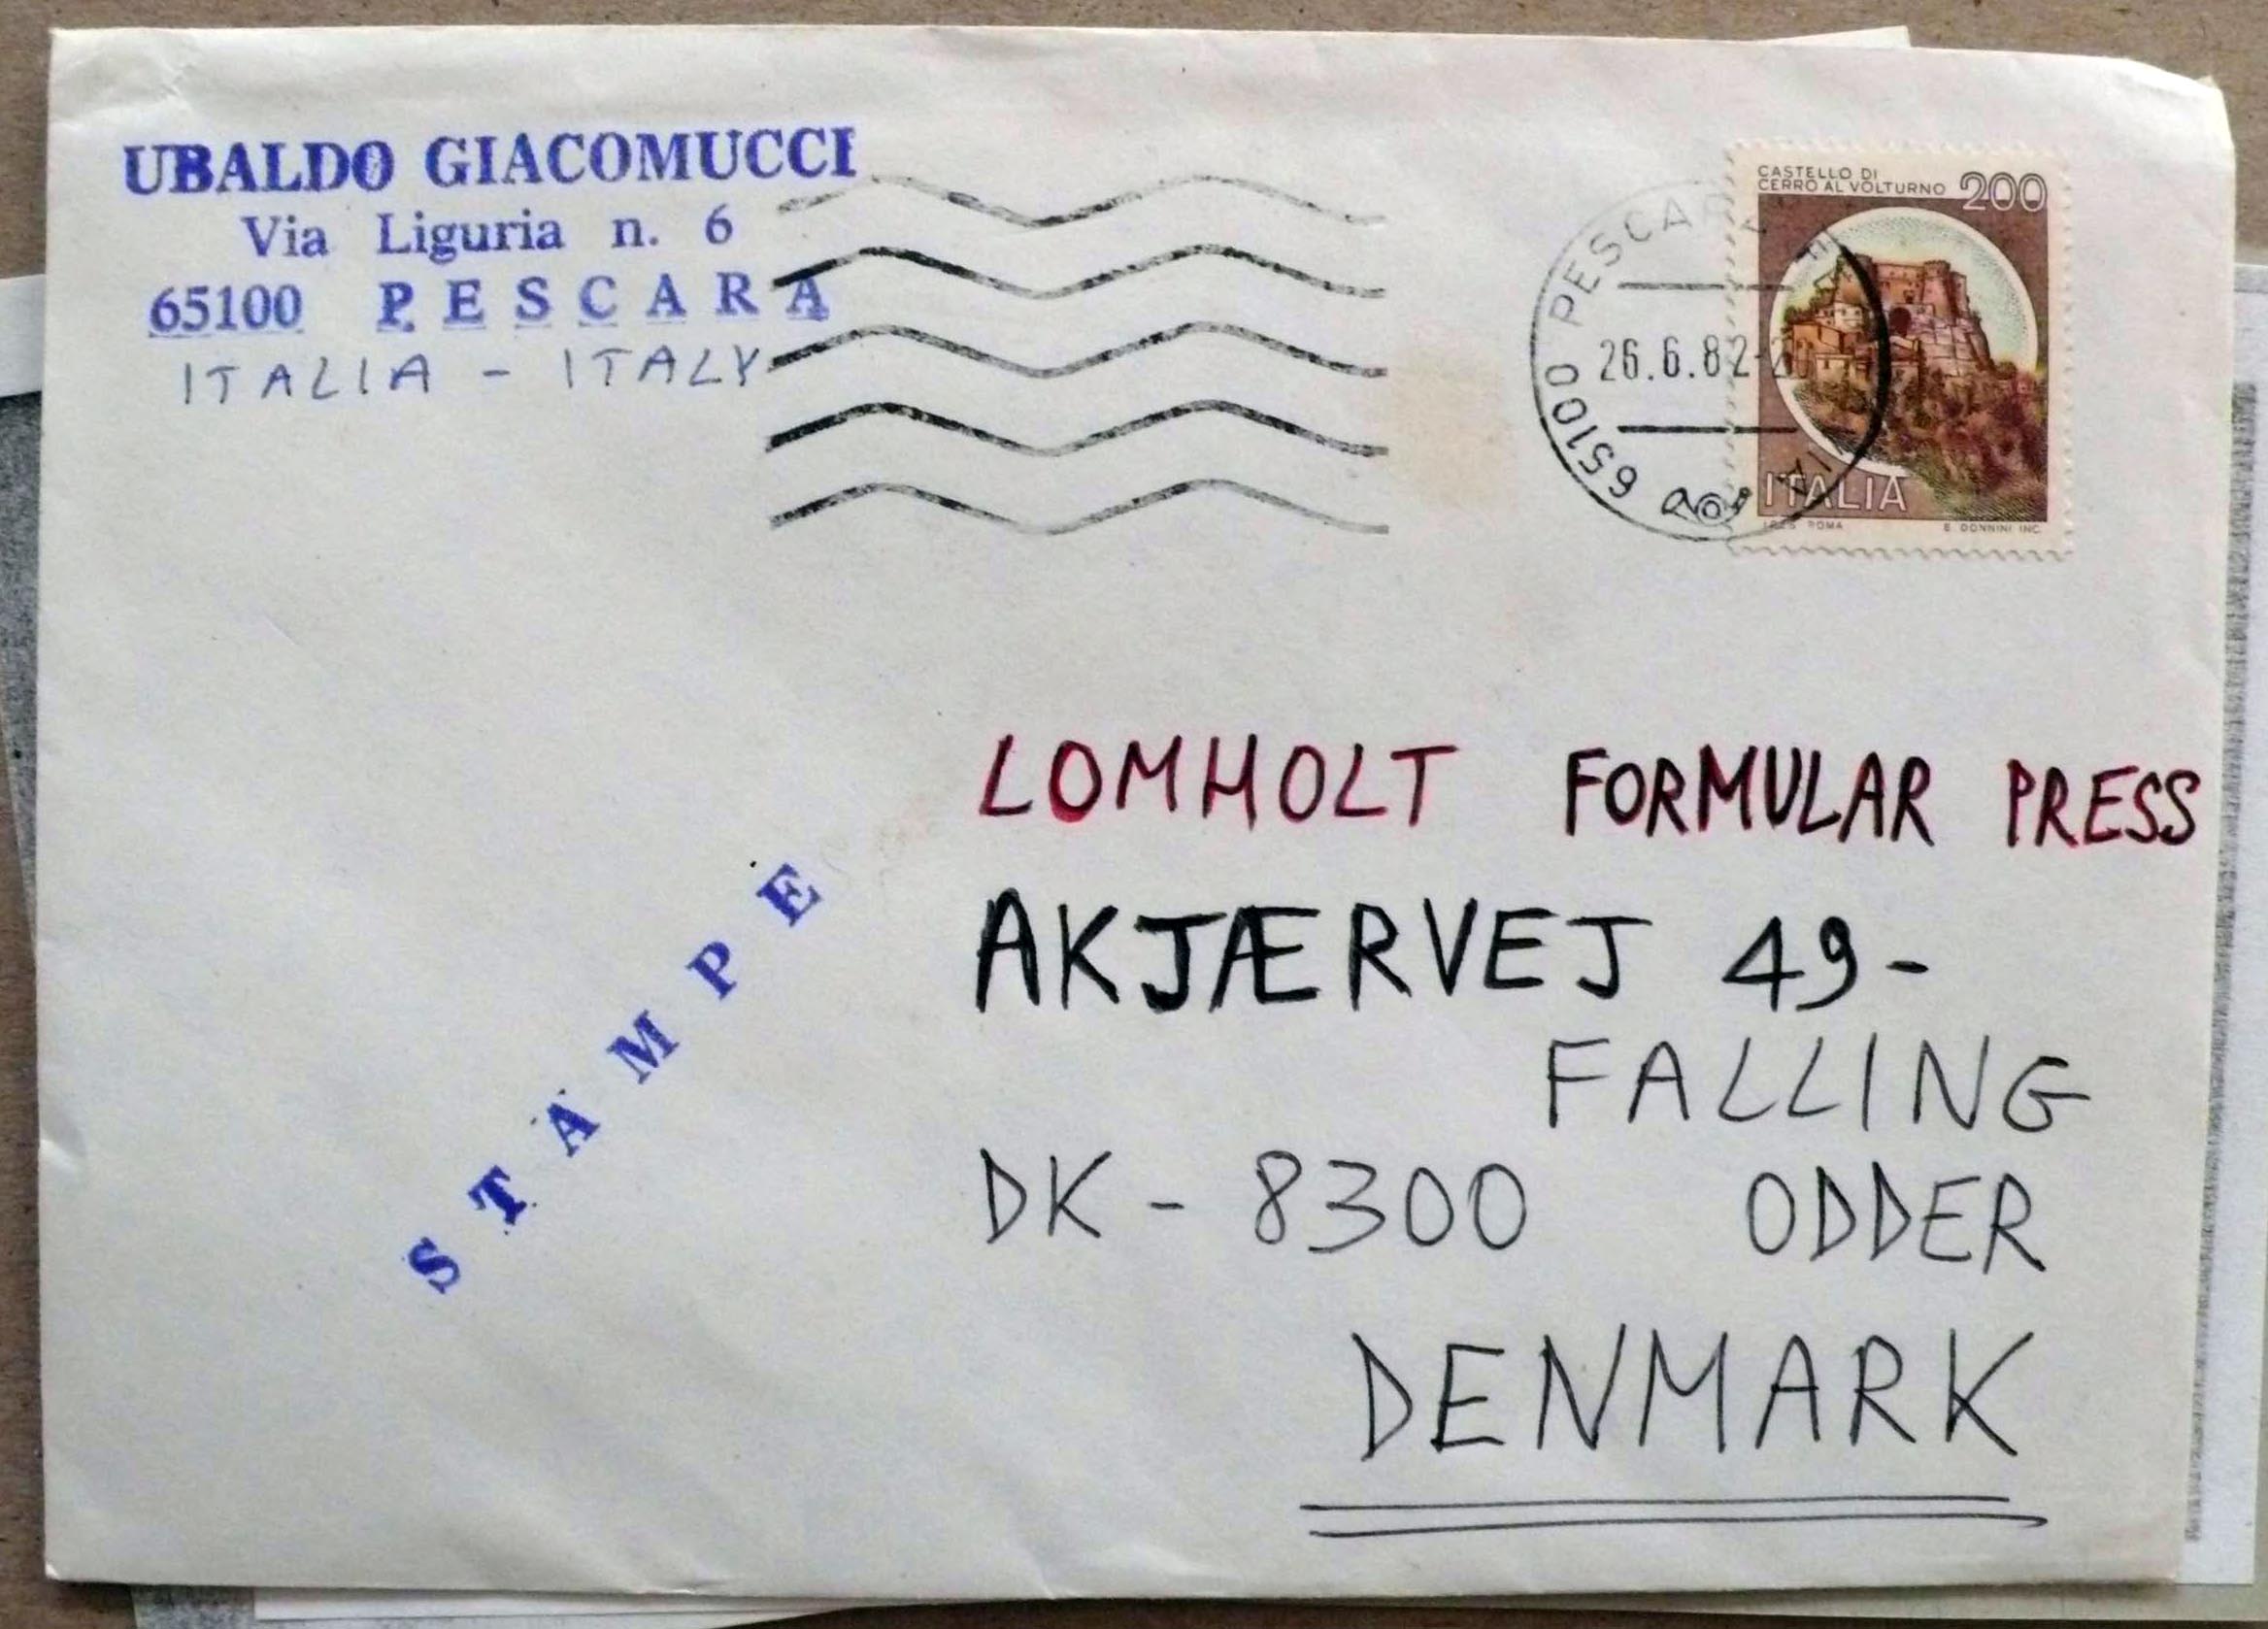 UBALDO GIACOMUCCI
Via Liguria n. 6
65100 PESCARA
ITALIA - ITALY
65100 PESCARA
26.6.82
CASTELLO DI
CERRO AL VOLTURNO 200
ITALIA
ROMA
E. DONNINI INC.
LOMHOLT FORMULAR PRESS
AKJÆRVEJ 49-
FALLING
DK - 8300 ODDER
DENMARK
STAMPE